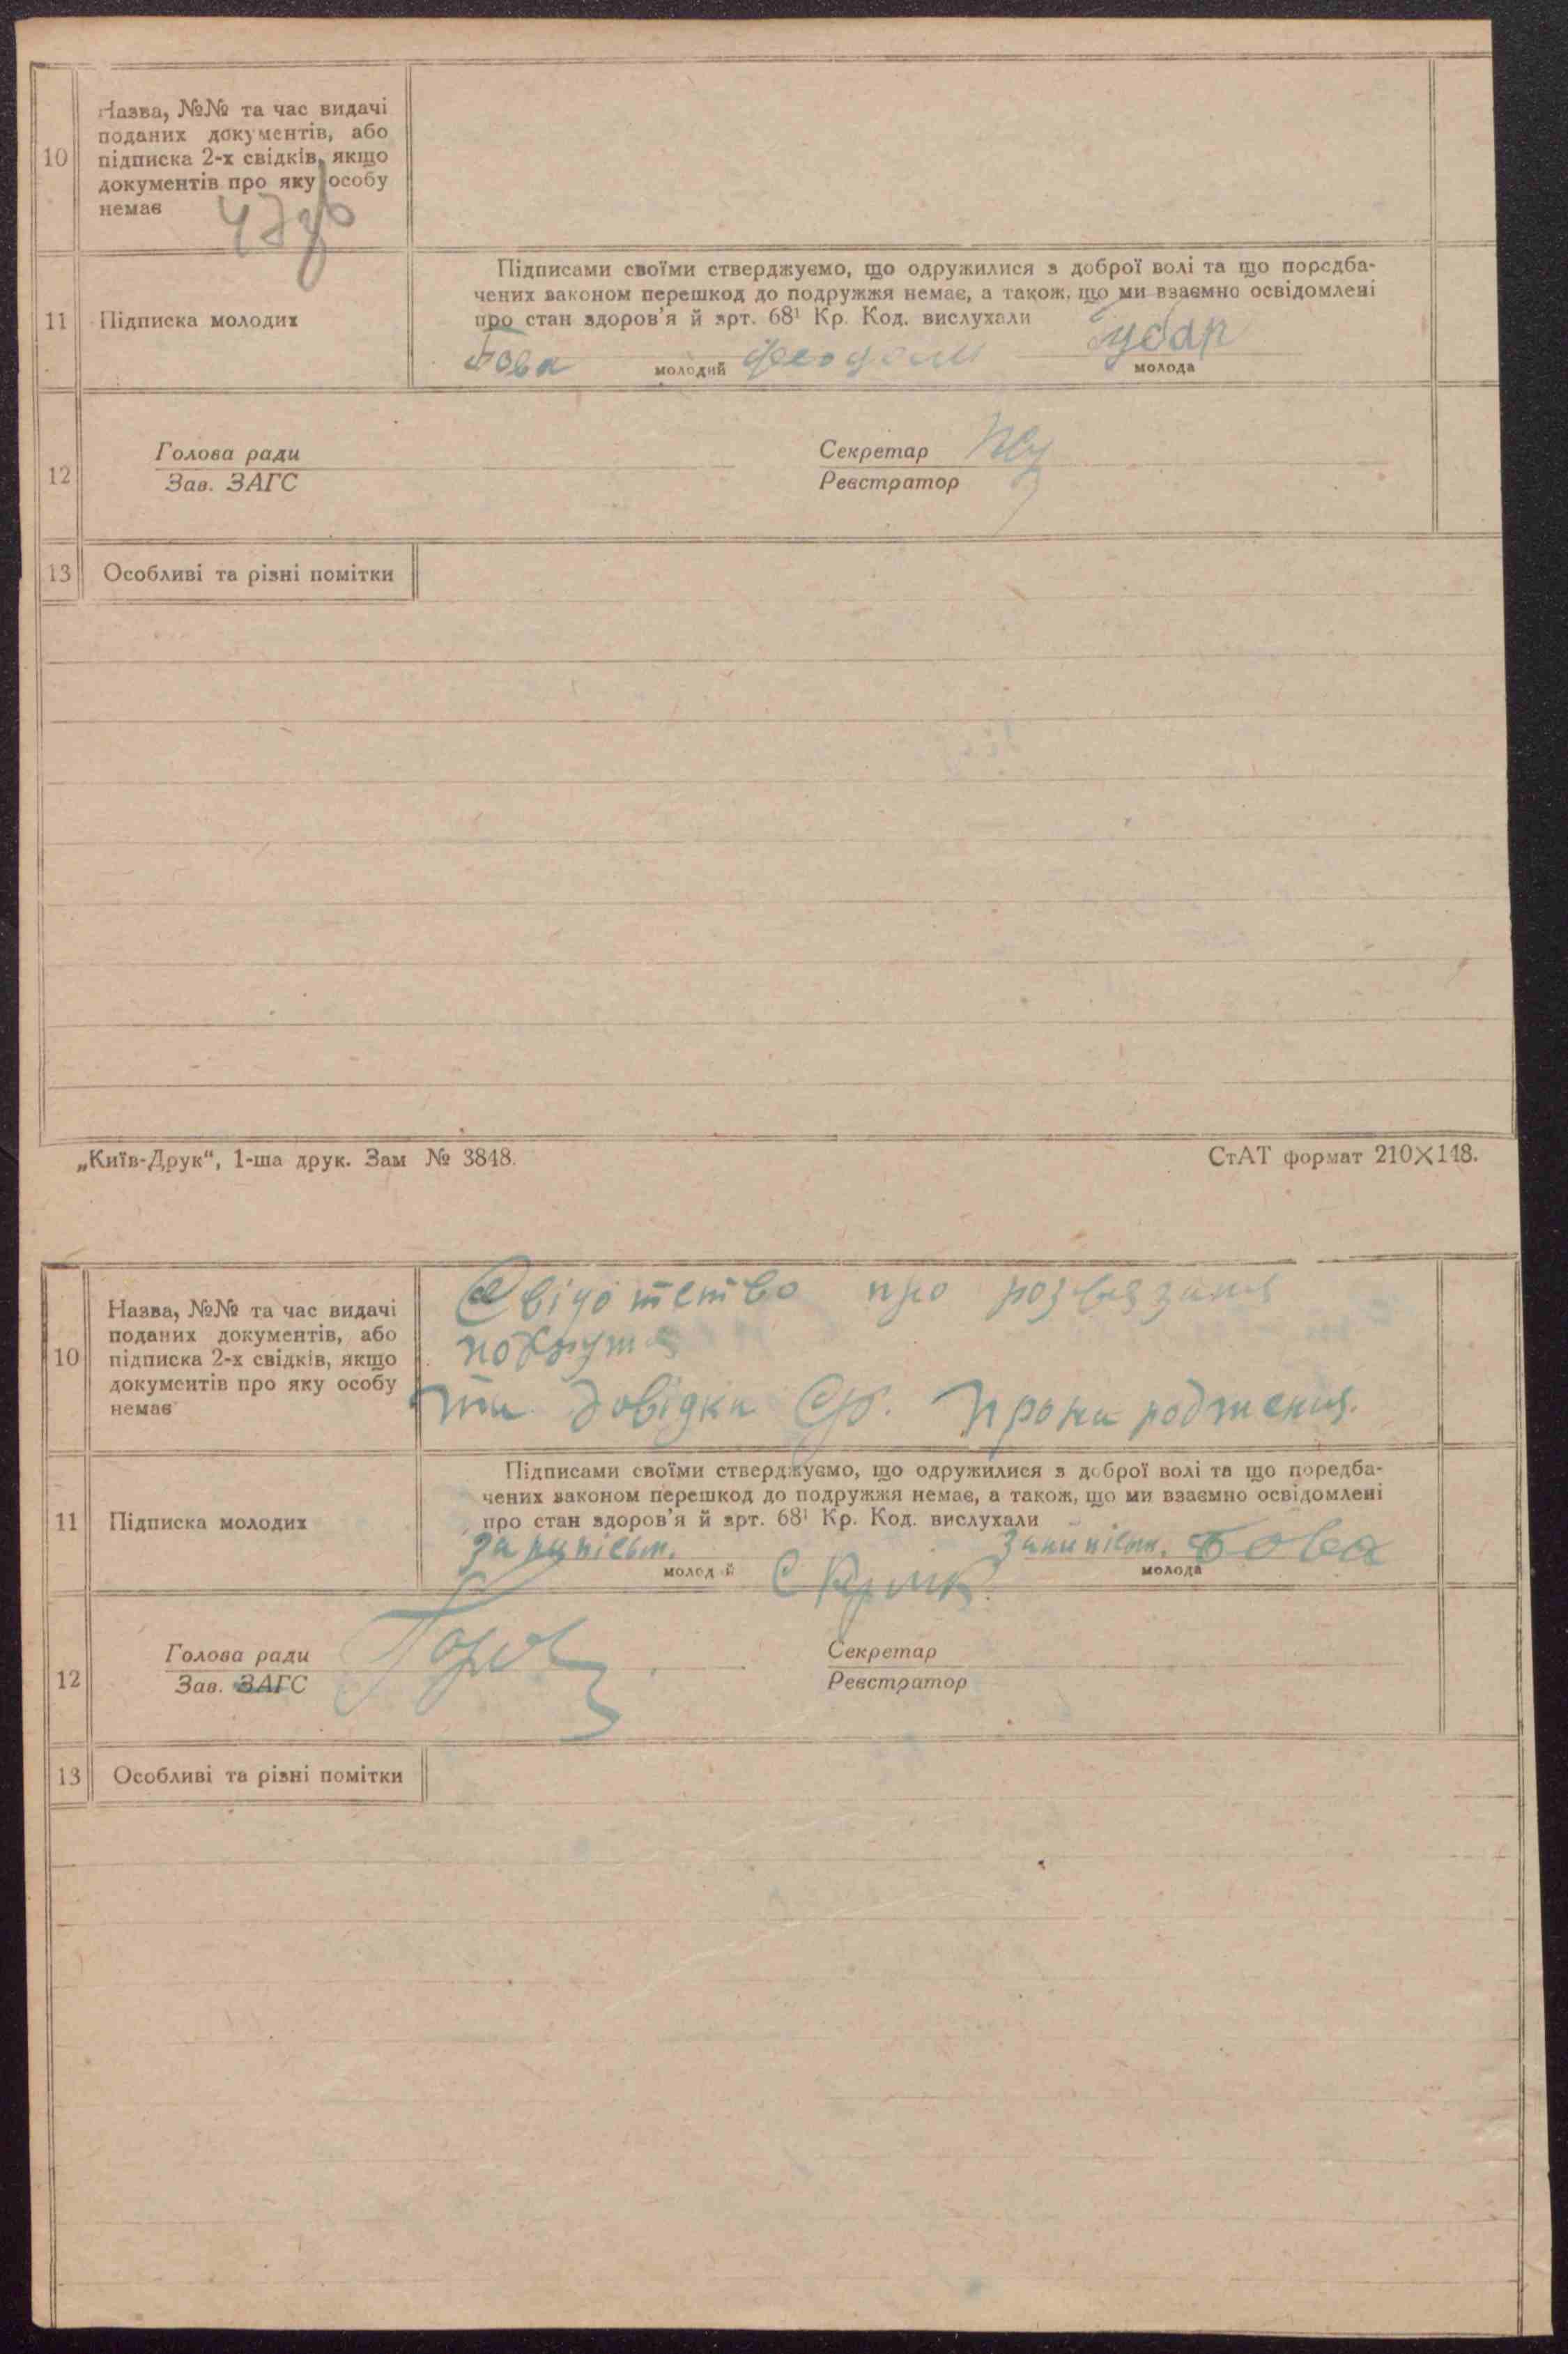 10
Назва, №№ та час видачі
поданих документів, або
підписка 2-х свідків, якщо
документів про яку особу
немає
11
Підписка молодих
Підписами своїми стверджуємо, що одружилися з доброї волі та що передба-
чених законом перешкод до подружжя немає, а також, що ми взаємно освідомлені
про стан здоров'я й арт. 68¹ Кр. Код. вислухали
Бова
молодий
молода
12
Голова ради
Зав. ЗАГС
Секретар
Реєстратор
13
Особливі та різні помітки
„Київ-Друк“, 1-ша друк. Зам № 3848.
СтАТ формат 210×148.
10
Назва, №№ та час видачі
поданих документів, або
підписка 2-х свідків, якщо
документів про яку особу
немає
про
та довідки
11
Підписка молодих
Підписами своїми стверджуємо, що одружилися з доброї волі та що передба-
чених законом перешкод до подружжя немає, а також, що ми взаємно освідомлені
про стан здоров'я й арт. 68¹ Кр. Код. вислухали
Бова
молодий
молода
12
Голова ради
Зав. ЗАГС
Секретар
Реєстратор
13
Особливі та різні помітки